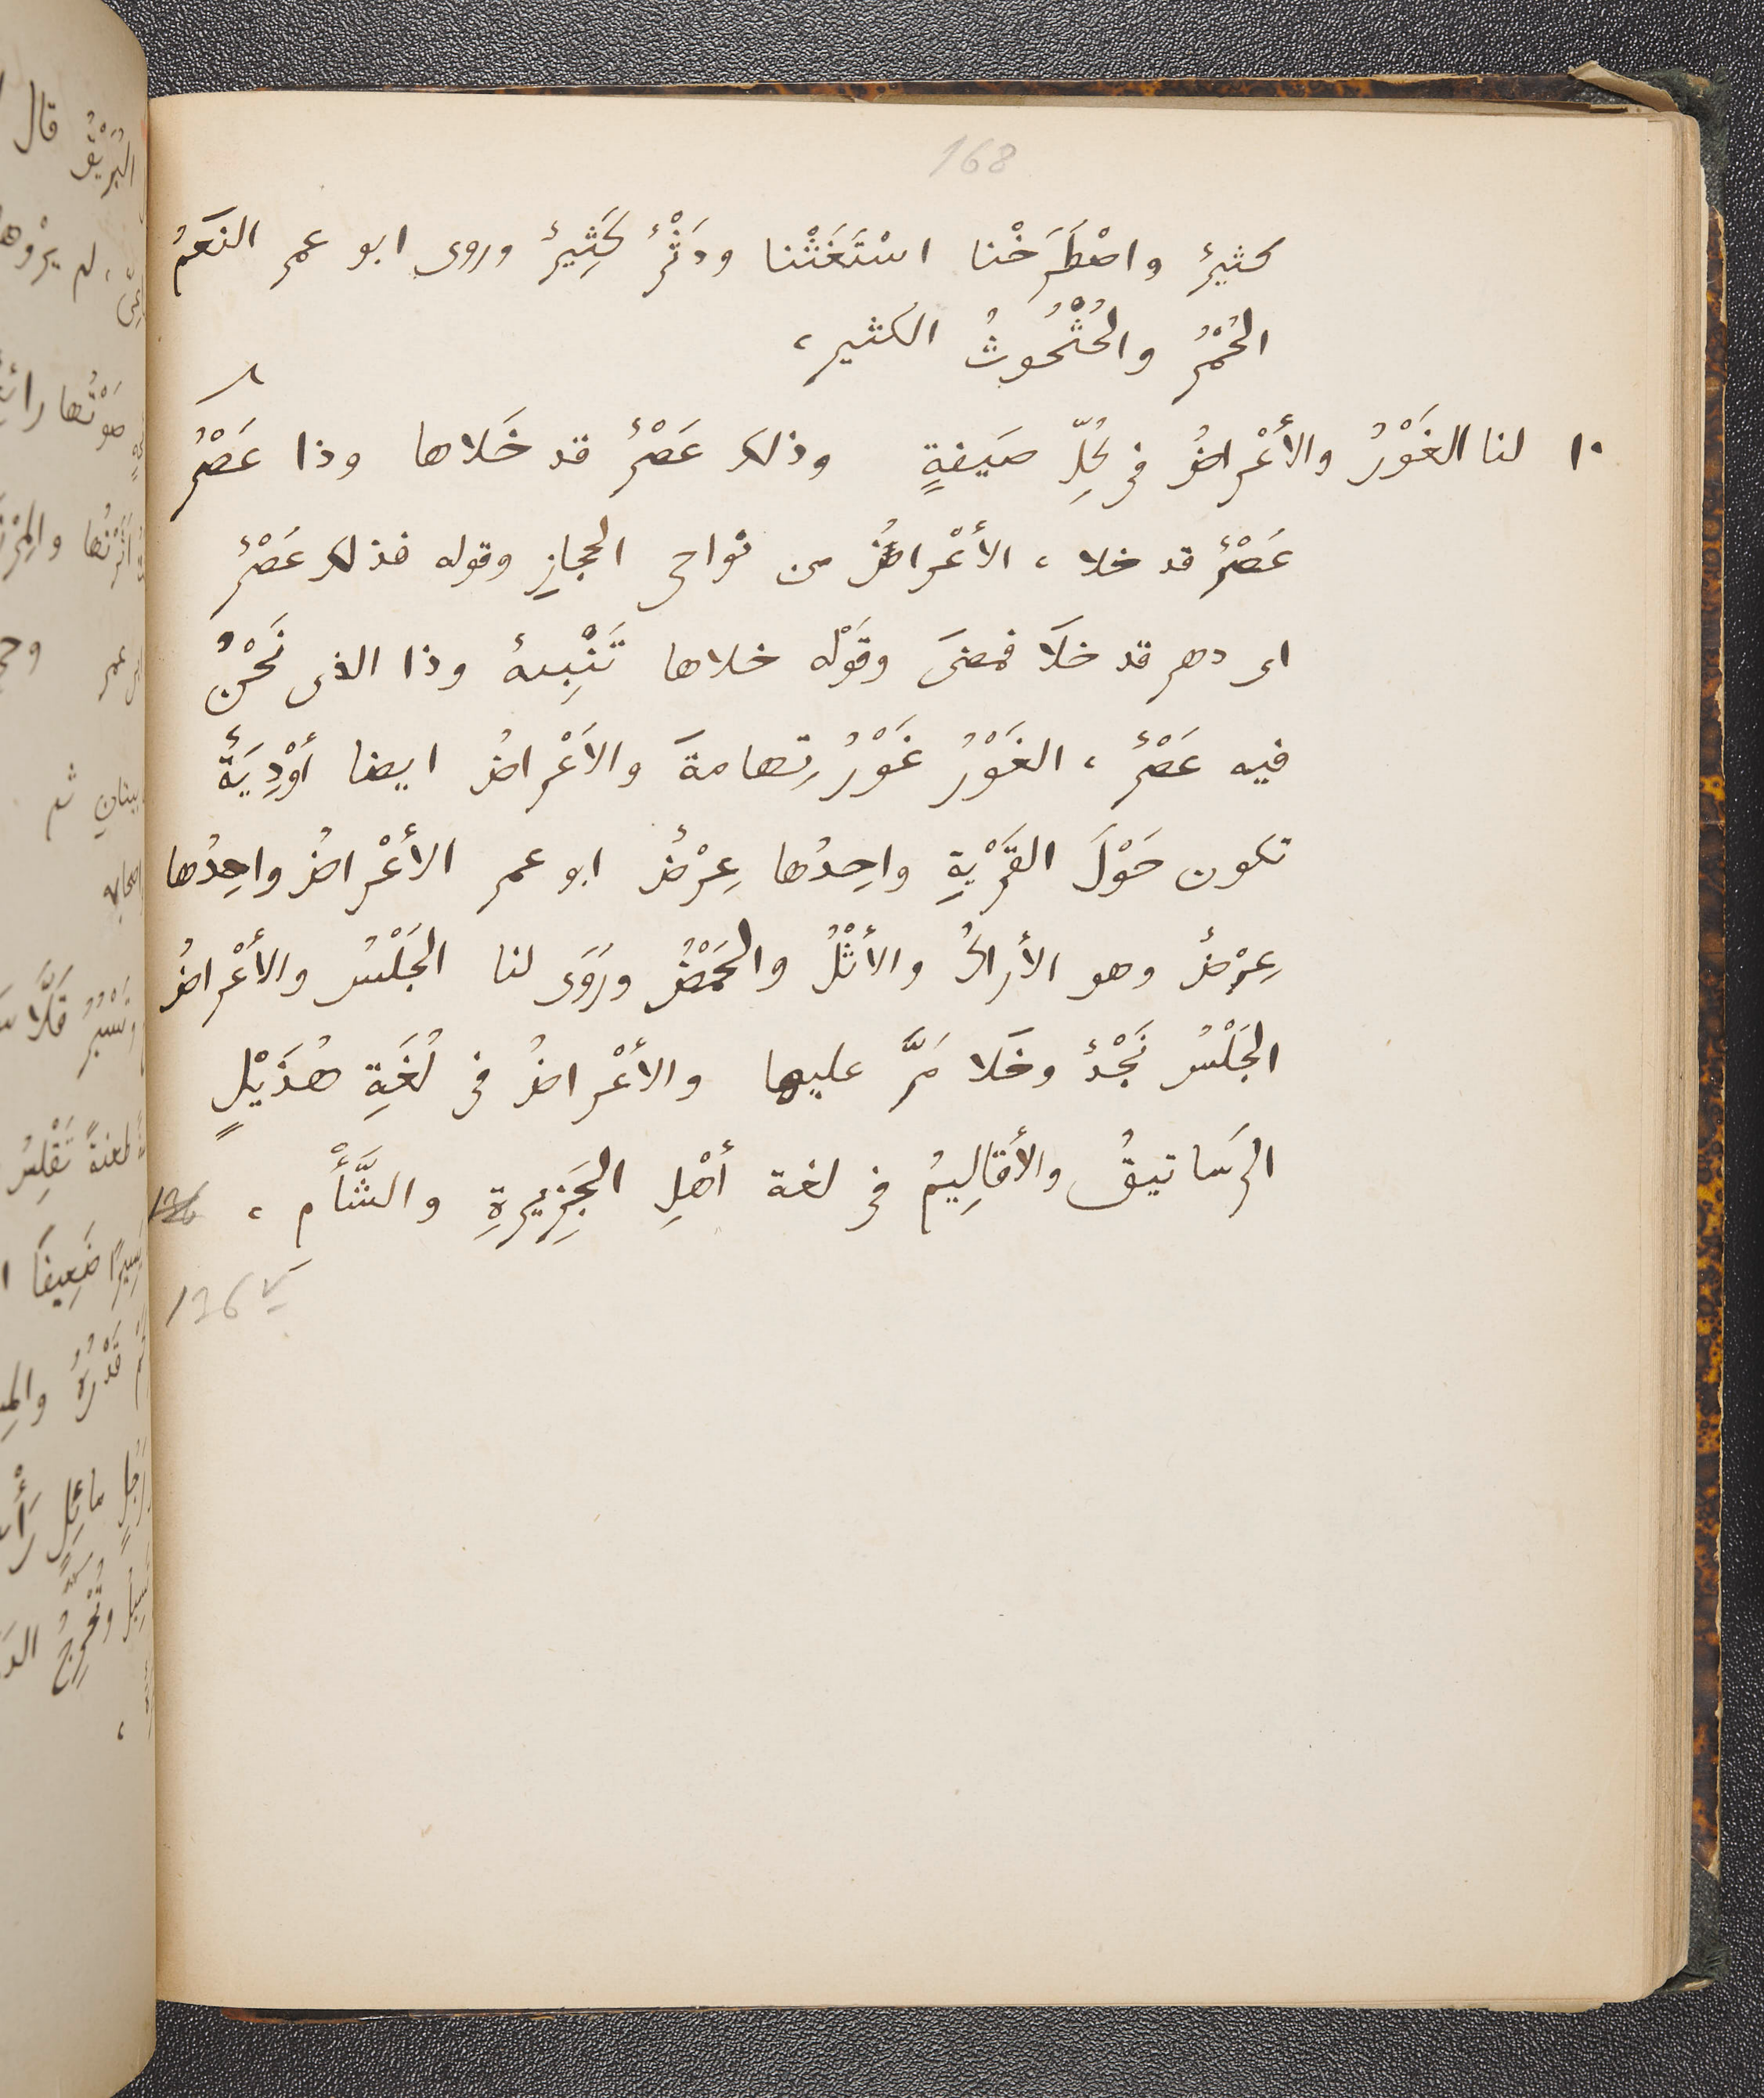 168
كثيرٌ واصْطَرَخْنا اسْتَغَثْنا ودَثْرٌ كَثِيرٌ وروى ابو عمر النَعَمُ
الحُمْرُ والحُثْحُوثُ الكثير،
١٠ لنا الغَوْرُ والأَعْراضُ فى كُلِّ صَيفةٍ وذلك عَصْرٌ قد خَلاها وذا عَصْرُ
عَصْرٌ قد خلا، الأَعْراضُ من نواحى الحجازِ وقوله فذلك عَصْرٌ
اى دهر قد خلَا فمضَى وقَوْله خلاها تَنْبِيهٌ وذا الذى نَحْنُ
فيه عَصْرٌ، الغَوْرُ غَوْرُ تِهامةَ والاَعْراضُ ايضا أَوْدِيَةٌ
تكون حَوْلَ القَرْيةِ واحِدُها عِرْضٌ ابو عمر الأَعْراضُ واحِدُها
عِرْضٌ وهو الأراكُ والأَثْلُ والحَمْضُ ورَوَى لنا الجَلْسُ والأَعْراضُ
الجَلْسُ نَجْدٌ وخَلا مَرَّ عليها والأَعْراضُ فى لُغَةِ هُذَيْلٍ
الرَساتيقُ والأَقالِيمُ فى لغة أهْلِ الجَزِيرةِ والشَّأْمِ، 126
126